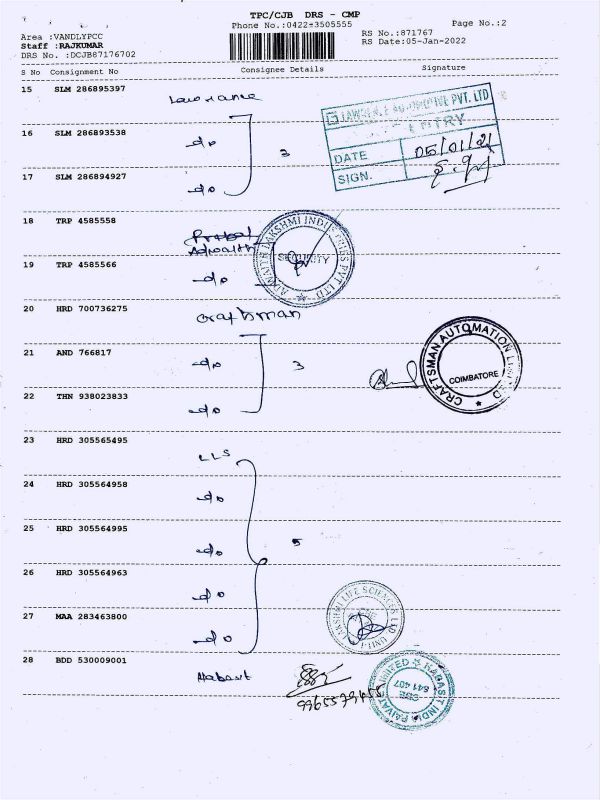 TPC/CJB DRS - CMP
Phone No.:0422±3505555
Page No.:2
Area :VANDLYPCC
Staff :RAJKUMAR
DRS No. :DCJB87176702
RS No.:871767
RS Date:05-Jan-2022
S No Consignment No Consignee Details Signature
15 SLM 286895397
Lawrance
LAWRENCE AUTOMOTIVE PVT. LTD
ENTRY
DATE 05/01/22
SIGN.
16 SLM 286893538 do
3
17 SLM 286894927 do
18 TRP 4585558
Adwaith
ADWAITH LAKSHMI INDUSTRIES PVT LTD
SECURITY
19 TRP 4585566 do
20 HRD 700736275 craftsman
21 AND 766817 do
3
CRAFTSMAN AUTOMATION LIMITED
COIMBATORE
22 THN 938023833 do
23 HRD 305565495 LLS
24 HRD 305564958 do
25 HRD 305564995 do
5
26 HRD 305564963 do
27 MAA 283463800 do
LAKSHMI LIFE SCIENCES LTD
UNIT-I
28 BDD 530009001 Habast
9965579455
HABAST INDIA PRIVATE LIMITED
CBE
641 407